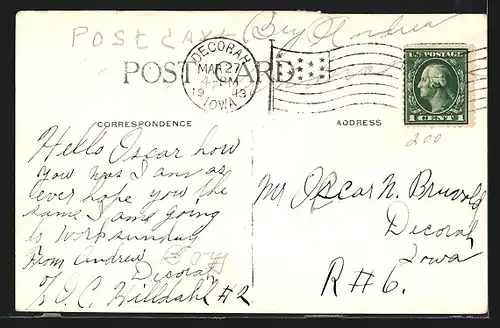 Post card By Andrew
POST CARD
DECORAH
MAR 27
4 PM
1913
IOWA
1 CENT 1
200
CORRESPONDENCE
ADDRESS
Hello Oscar how
you was I am as
ever hope you the
same I ame going
to work sunday
From Andrew Boy
Decorah
% O.C. Willdahl #2
Mr Oscar N. Bruvold
Decorah
Iowa
R#6.